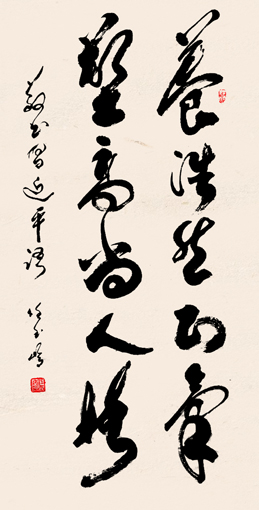 養浩然正氣
塑高尚人格
敬书習近平语